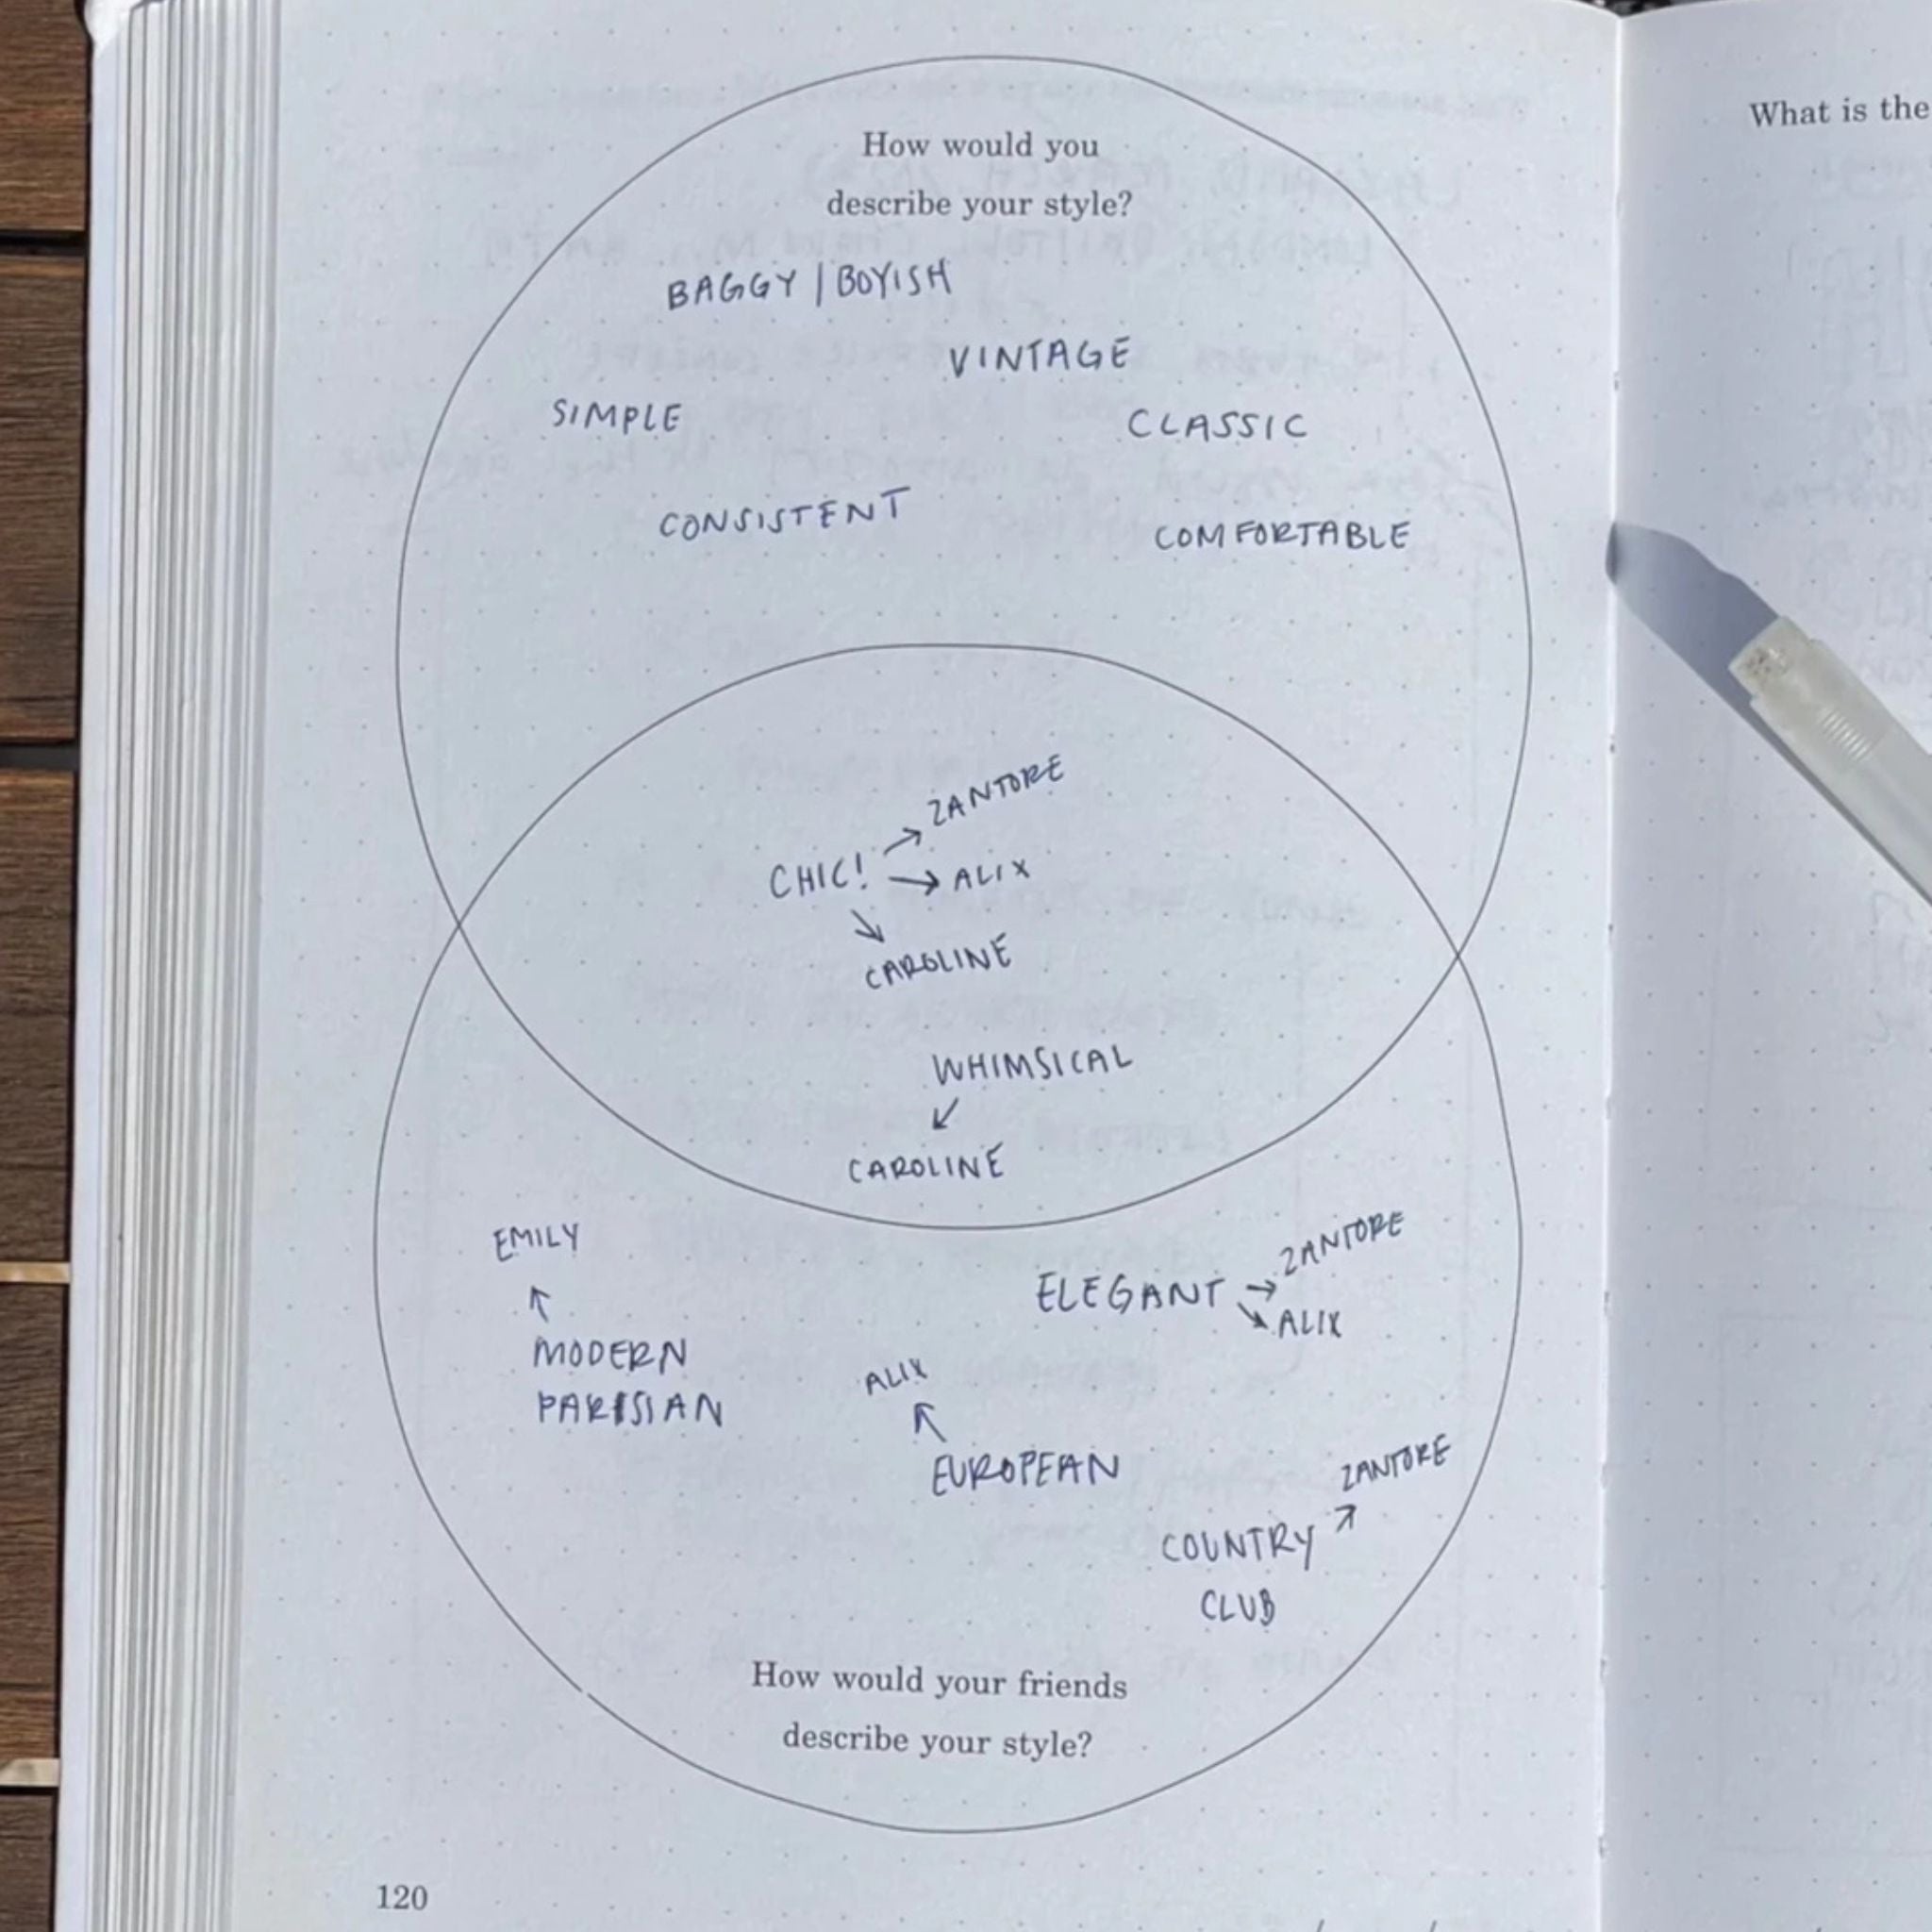 How would you
describe your style?
BAGGY | BOYISH
VINTAGE
SIMPLE
CLASSIC
CONSISTENT
COMFORTABLE
ZANTORE
CHIC! → ALIX
CAROLINE
WHIMSICAL
CAROLINE
EMILY
MODERN
PARISIAN
ZANTORE
ELEGANT
ALIX
ALIX
EUROPEAN
ZANTORE
COUNTRY
CLUB
How would your friends
describe your style?
120
What is the